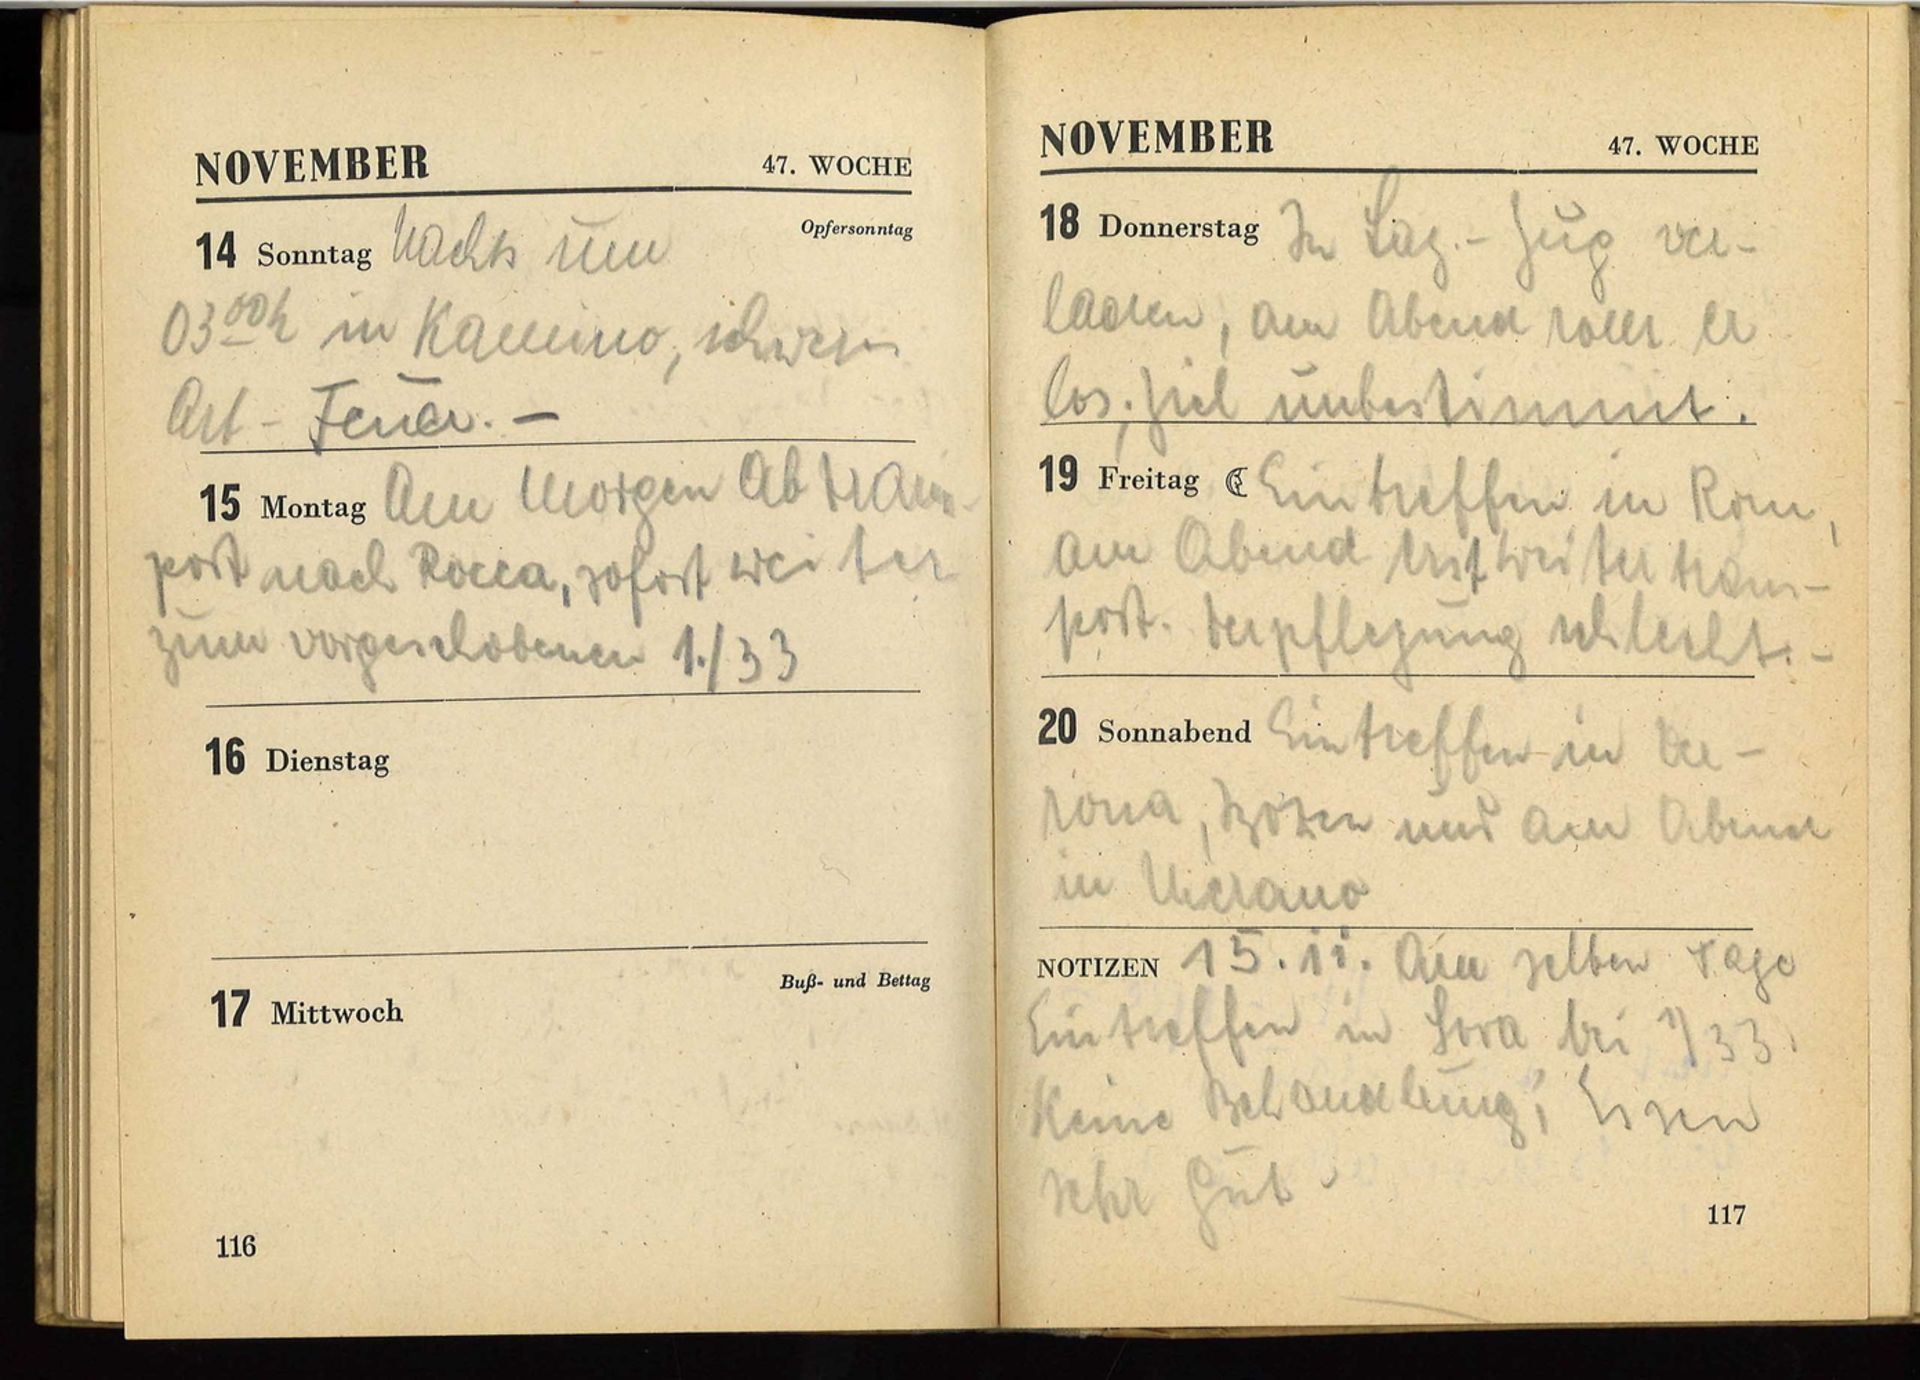 NOVEMBER 47. WOCHE
14 Sonntag Nachts um Opfersonntag
03⁰⁰h in Kammino, schweres
Art-Feuer. –
15 Montag Am Morgen Abtrans-
port nach Rocca, sofort weiter
zum vorgeschobenen 1./33
16 Dienstag
17 Mittwoch Buß- und Bettag
116
NOVEMBER 47. WOCHE
18 Donnerstag In Laz.-Zug ver-
laden, am Abend rollt er
los, Ziel unbestimmt.
19 Freitag ☾ Eintreffen in Rom,
am Abend erst Weitertrans-
port. Verpflegung schlecht. –
20 Sonnabend Eintreffen in Ve-
rona, Bozen und am Abend
in Merano
NOTIZEN 15.11. Am selben Tage
Eintreffen in Sora bei 1/33.
Keine Behandlung, Essen
sehr gut.
117